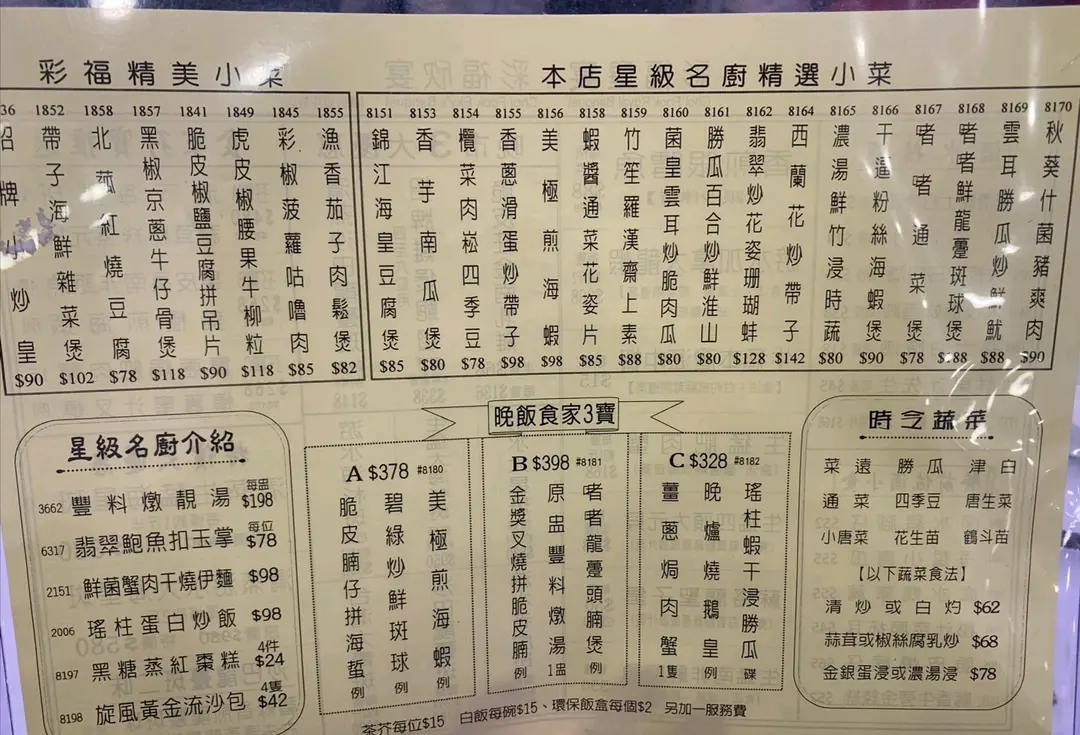 彩福精美小菜
36 招牌小炒皇 $90
1852 帶子海鮮雜菜煲 $102
1858 北菰紅燒豆腐 $78
1857 黑椒京蔥牛仔骨煲 $118
1841 脆皮椒鹽豆腐拼吊片 $90
1849 虎皮椒腰果牛柳粒 $118
1845 彩椒菠蘿咕嚕肉 $85
1855 漁香茄子肉鬆煲 $82
本店星級名廚精選小菜
8151 錦江海皇豆腐煲 $85
8153 香芋南瓜煲 $80
8154 欖菜肉崧四季豆 $78
8155 香蔥滑蛋炒帶子 $98
8156 美極煎海蝦 $98
8158 蝦醬通菜花姿片 $85
8159 竹笙羅漢齋上素 $88
8160 菌皇雲耳炒脆肉瓜 $80
8161 勝瓜百合炒鮮淮山 $80
8162 翡翠炒花姿珊瑚蚌 $128
8164 西蘭花炒帶子 $142
8165 濃湯鮮竹浸時蔬 $80
8166 干逼粉絲海蝦煲 $90
8167 啫啫通菜煲 $78
8168 啫啫鮮龍躉斑球煲 $188
8169 雲耳勝瓜炒鮮魷 $88
8170 秋葵什菌豬爽肉 $90
星級名廚介紹
3662 豐料燉靚湯 每盅 $198
6317 翡翠鮑魚扣玉掌 每位 $78
2151 鮮菌蟹肉干燒伊麵 $98
2006 瑤柱蛋白炒飯 $98
8197 黑糖蒸紅棗糕 4件 $24
8198 旋風黃金流沙包 4隻 $42
晚飯食家3寶
A $378 #8180
美極煎海蝦 例
碧綠炒鮮斑球 例
脆皮腩仔拼海蜇 例
B $398 #8181
啫啫龍躉頭腩煲 例
原盅豐料燉湯 1盅
金獎叉燒拼脆皮腩 例
C $328 #8182
瑤柱蝦干浸勝瓜 碟
晚爐燒鵝皇 例
薑蔥焗肉蟹 1隻
時令蔬菜
菜遠 勝瓜 津白
通菜 四季豆 唐生菜
小唐菜 花生苗 鶴斗苗
【以下蔬菜食法】
清炒或白灼 $62
蒜茸或椒絲腐乳炒 $68
金銀蛋浸或濃湯浸 $78
茶芥每位$15 白飯每碗$15、環保飯盒每個$2 另加一服務費